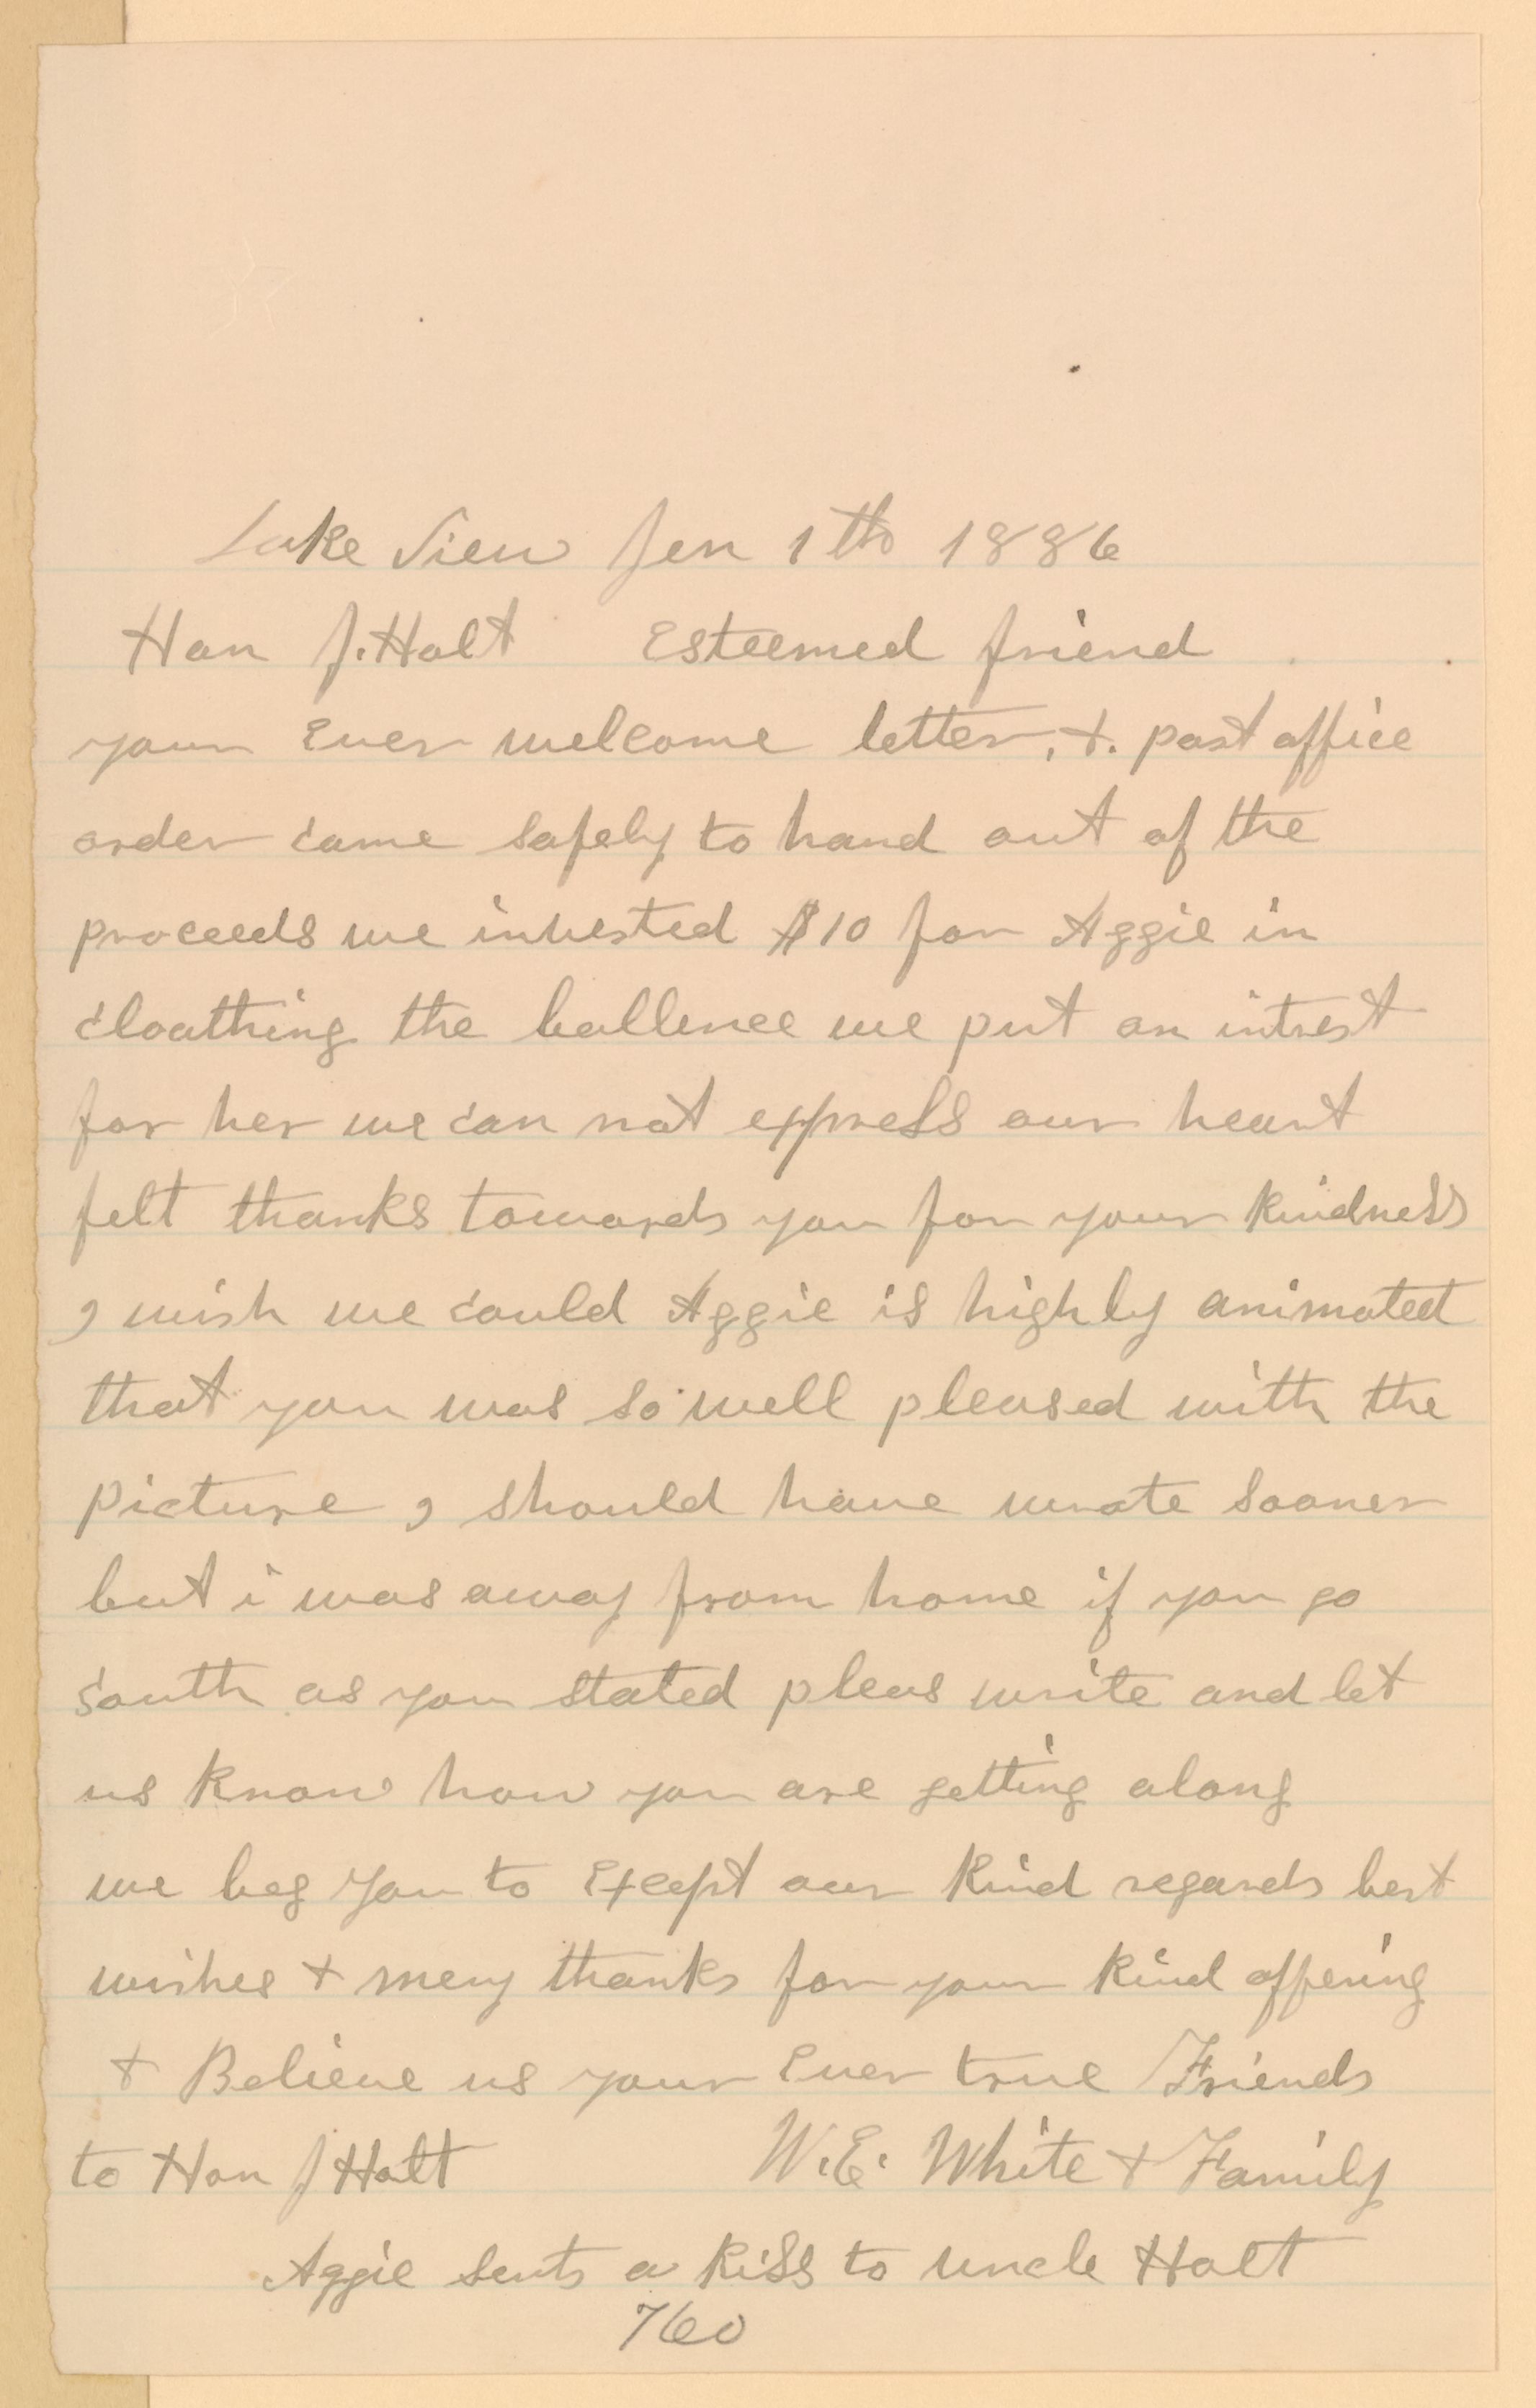 Lake View Jen 1th 1886
Hon J. Holt Esteemed friend
your Ever welcome letter, &. post office
order came safely to hand out of the
proceeds we invested $10 for Aggie in
cloathing the ballence we put on intrest
for her we can not express our heart
felt thanks towards you for your kindness
I wish we could Aggie is highly animated
that you was so well pleased with the
picture I should have wrote sooner
but i was away from home if you go
south as you stated pleas write and let
us know how you are getting along
we beg you to Except our kind regards best
wishes & meny thanks for your kind offering
& Believe us your Ever true Friends
to Hon J Holt W.E. White & Family
Aggie sents a kiss to uncle Holt
760